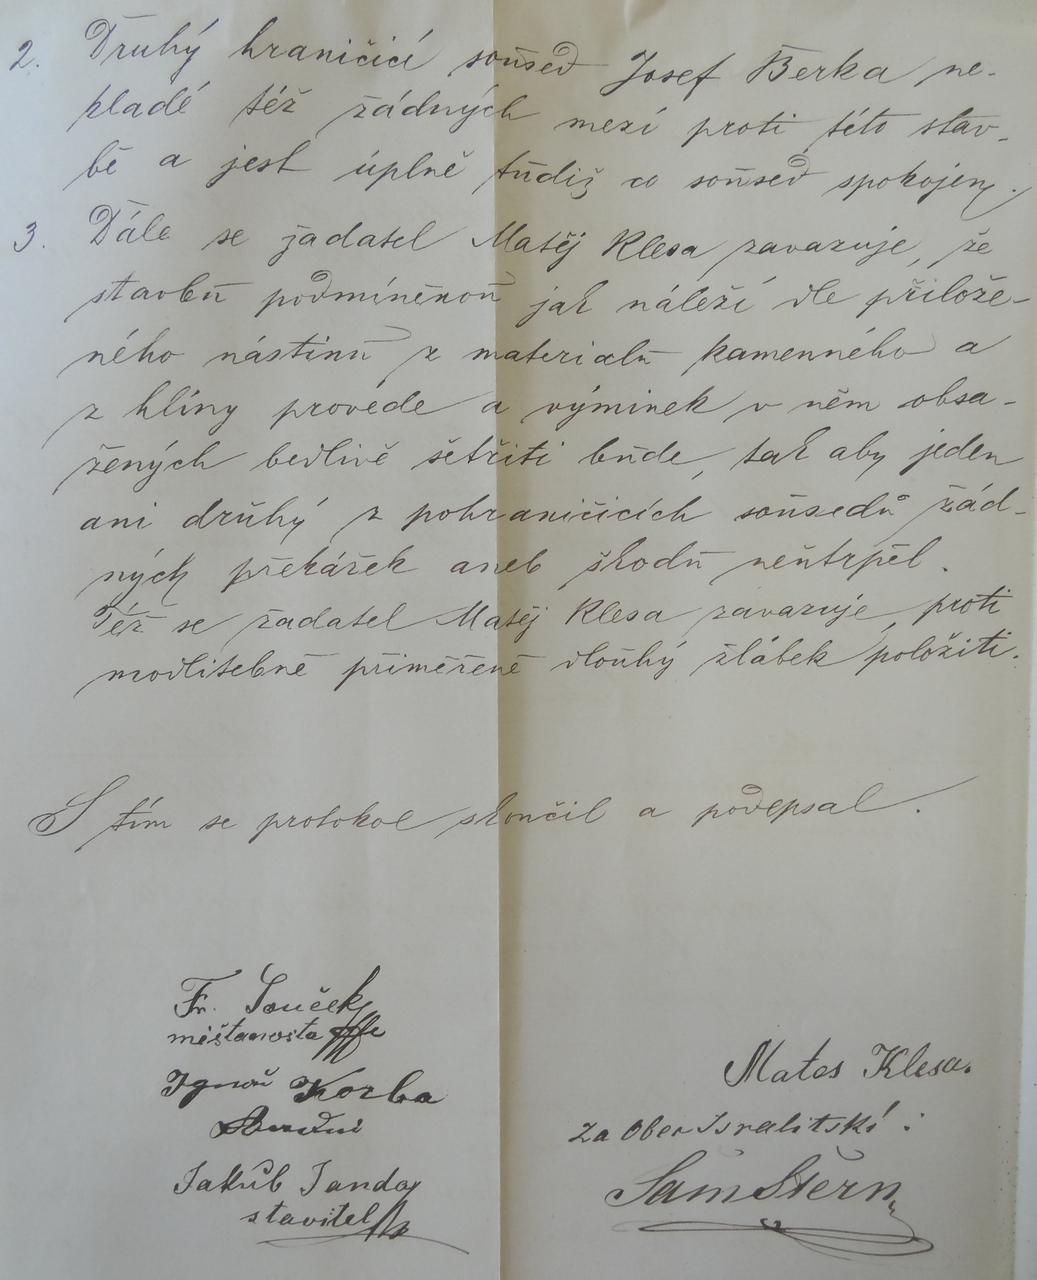 2. Druhý hraničicí soused Josef Berka ne-
kladé též žádných mezí proti této stav-
bě a jest úplně tudiž co soused spokojen.
3. Dále se žadatel Matěj Klesa zavazuje, že
stavbu podmíněnou jak náleží dle přilože-
ného nástinu z materialu kamenného a
z hlíny provede a výminek v něm obsa-
žených bedlivě šetřiti bude, tak aby jeden
ani druhý z pohraničicích sousedů žád-
ných překážek aneb škodu neutrpěl.
Též se žadatel Matěj Klesa zavazuje, proti
modlitebně přiměřeně dlouhý žlábek položiti.
S tím se protokol skončil a podepsal.
Fr. Souček
měšťanosta
Ignac Korba
Jakub Janda
stavitel
Mates Klesa.
Za Obec Isralitski:
Sam Stern